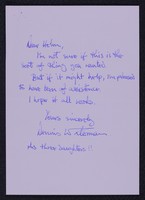 Dear Helen,
I'm not sure if this is the
sort of thing you wanted
But if it might help, I'm pleased
to have been of assistance
I hope it all works.
Yours sincerely
Dennis Waterman
his three daughters!!